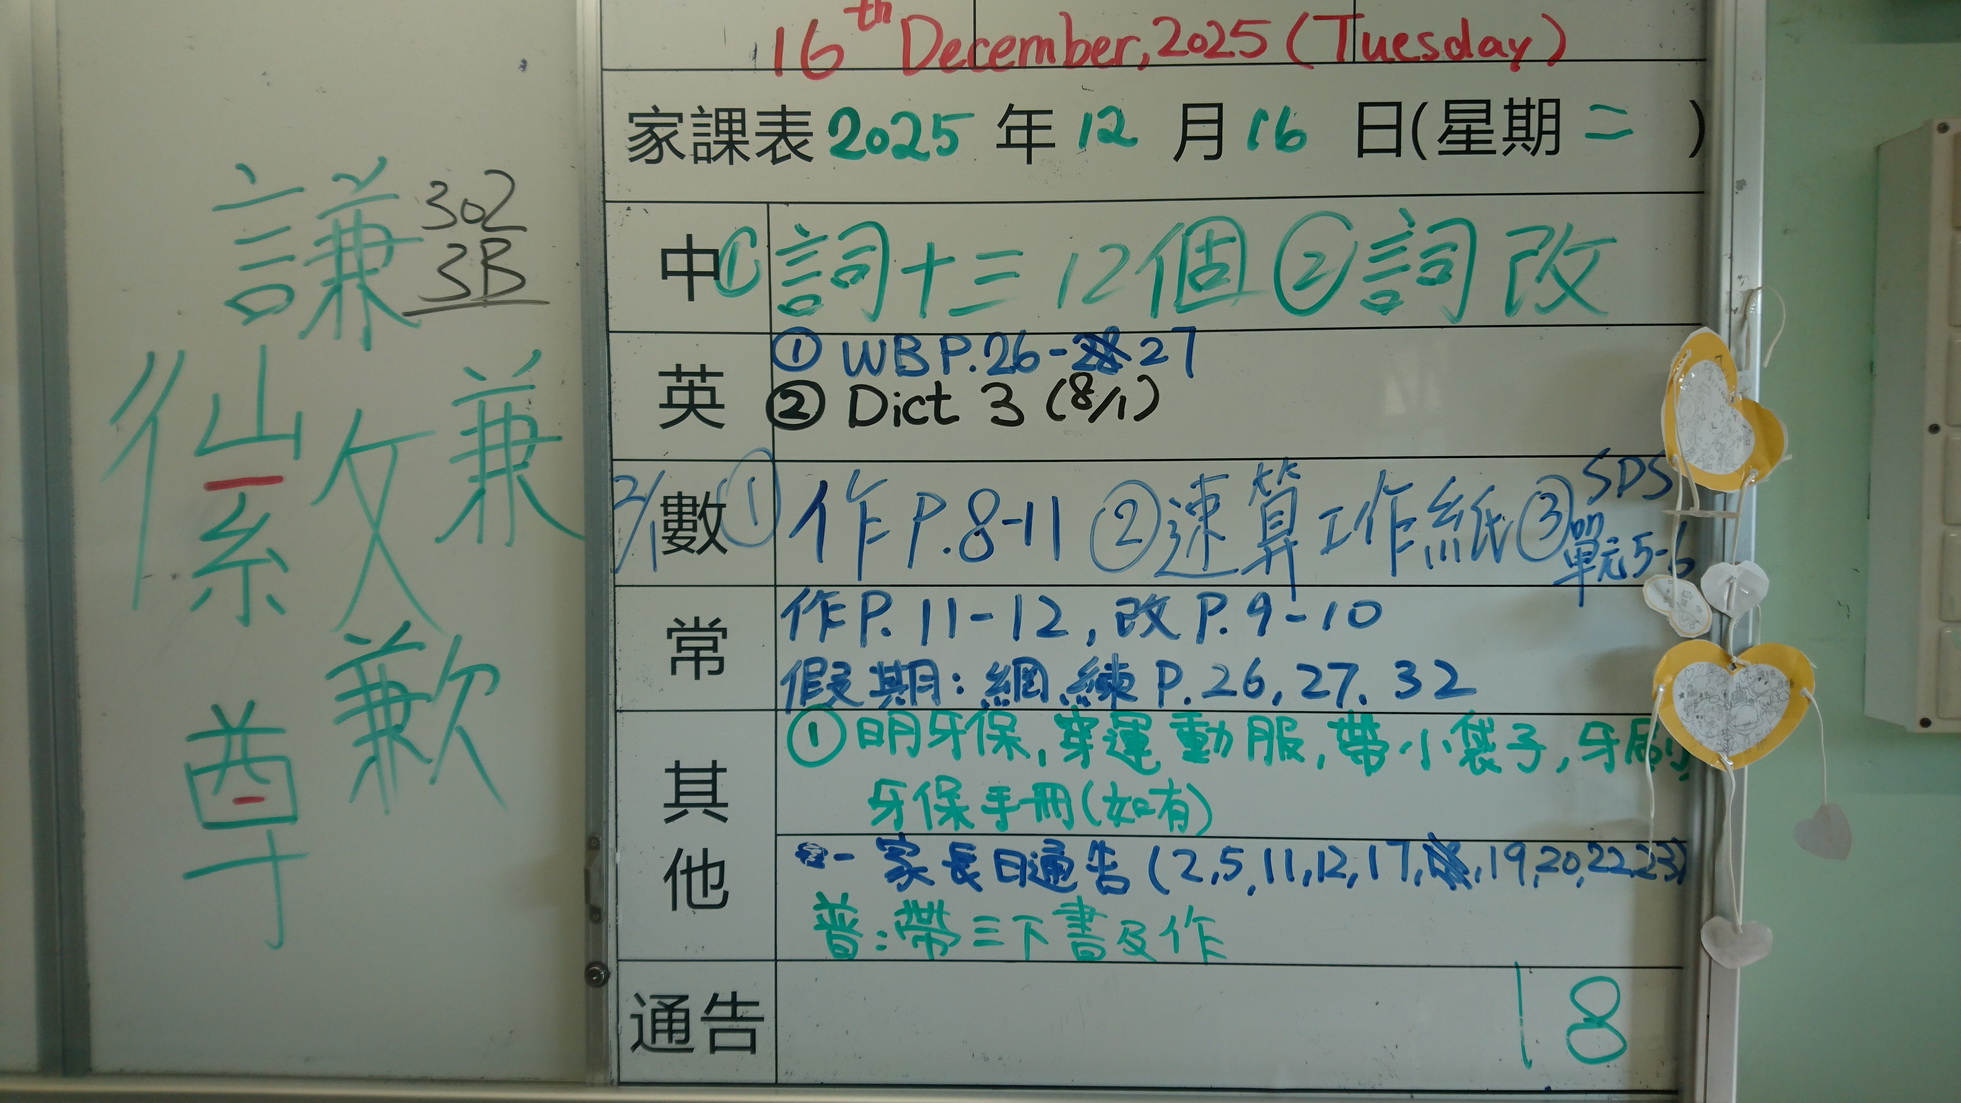 16th December, 2025 (Tuesday)
家課表 2025 年 12 月 16 日(星期 二 )
中 ① 詞十三 12個 ② 詞改
英 ① WB P.26-27
② Dict 3 (8/1)
數 ① 作 P.8-11 ② 速算工作紙 ③ SDS on 單元5-6
常 作P. 11-12, 改 P. 9-10
假期: 網練 P. 26, 27. 32
其他 ① 明牙保, 穿運動服, 帶小袋子, 牙刷,
牙保手冊(如有)
- 家長日通告 (2,5,11,12,17,19,20,22,23)
普: 帶三下書及作
通告 18
謙 302
3B
兼
歉
尊